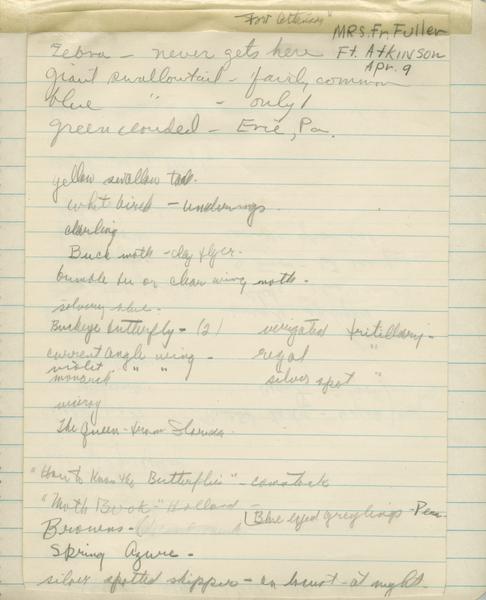 "Fort Atkinson"
MRS. Fr. Fuller
Ft. Atkinson
Apr. 9
Zebra - never gets here
giant swallowtail - fairly common
blue " - only 1
green clouded - Erie, Pa.
yellow swallow tail.
whit - underwings
darling
Buck moth - day flyer.
bumble bee or clear wing moth.
silvery blue.
Buckeye butterfly - (2) verigated fritillary -
current angle wing - regal "
violet " "
monarch silver spot "
viceroy
The Queen - from Florida.
"How to Know the Butterflies" - comstock
"Moth Book" Holland -
Browns - Blue eyed greylings - Penn
Spring Azure -
silver spotted skippers - on locust - at night.